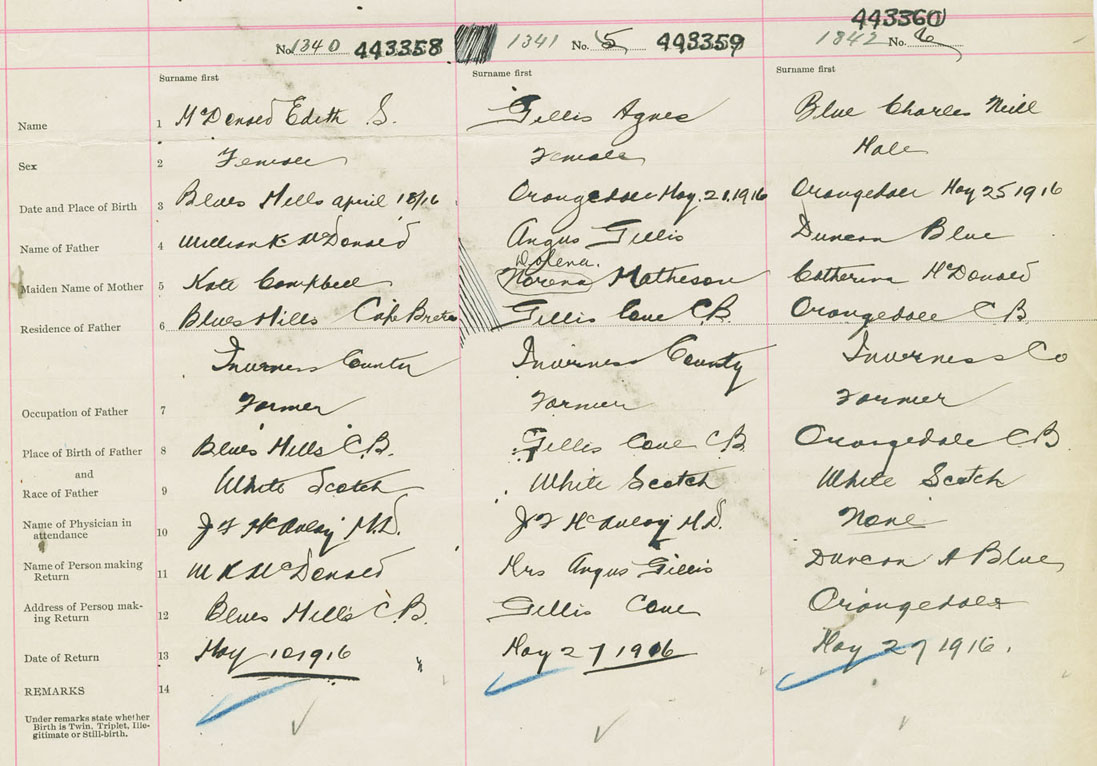 443360
No. 1340 443358 1341 No. 5 443359 1342 No. 6
Surname first Surname first Surname first
Name 1 McDonald Edith S. Gillis Agnes Blue Charles Neill
Sex 2 Female Female Male
Date and Place of Birth 3 Blues Mills april 18/16 Orangedale May. 21. 1916 Orangedale May 25 1916
Name of Father 4 William K McDonald Angus Gillis Duncan Blue
Dolena.
Maiden Name of Mother 5 Kate Campbell Norena Matheson Catherina McDonald
Residence of Father 6 Blues Mills Cape Breton Gillis Cove C.B. Orangedale C B
Inverness County Inverness County Inverness Co
Occupation of Father 7 Farmer Farmer Farmer
Place of Birth of Father 8 Blues Mills C.B. Gillis Cove C B Orangedale C B
and
Race of Father 9 White Scotch White Scotch White Scotch
Name of Physician in
attendance 10 M.D. M.D. None
Name of Person making
Return 11 W K McDonald Mrs Angus Gillis Duncan A Blue
Address of Person mak-
ing Return 12 Blues Mills C.B. Gillis Cove Orangedale
Date of Return 13 May 10 1916 May 27 1916 May 27 1916.
REMARKS 14
Under remarks state whether
Birth is Twin, Triplet, Ille-
gitimate or Still-birth.